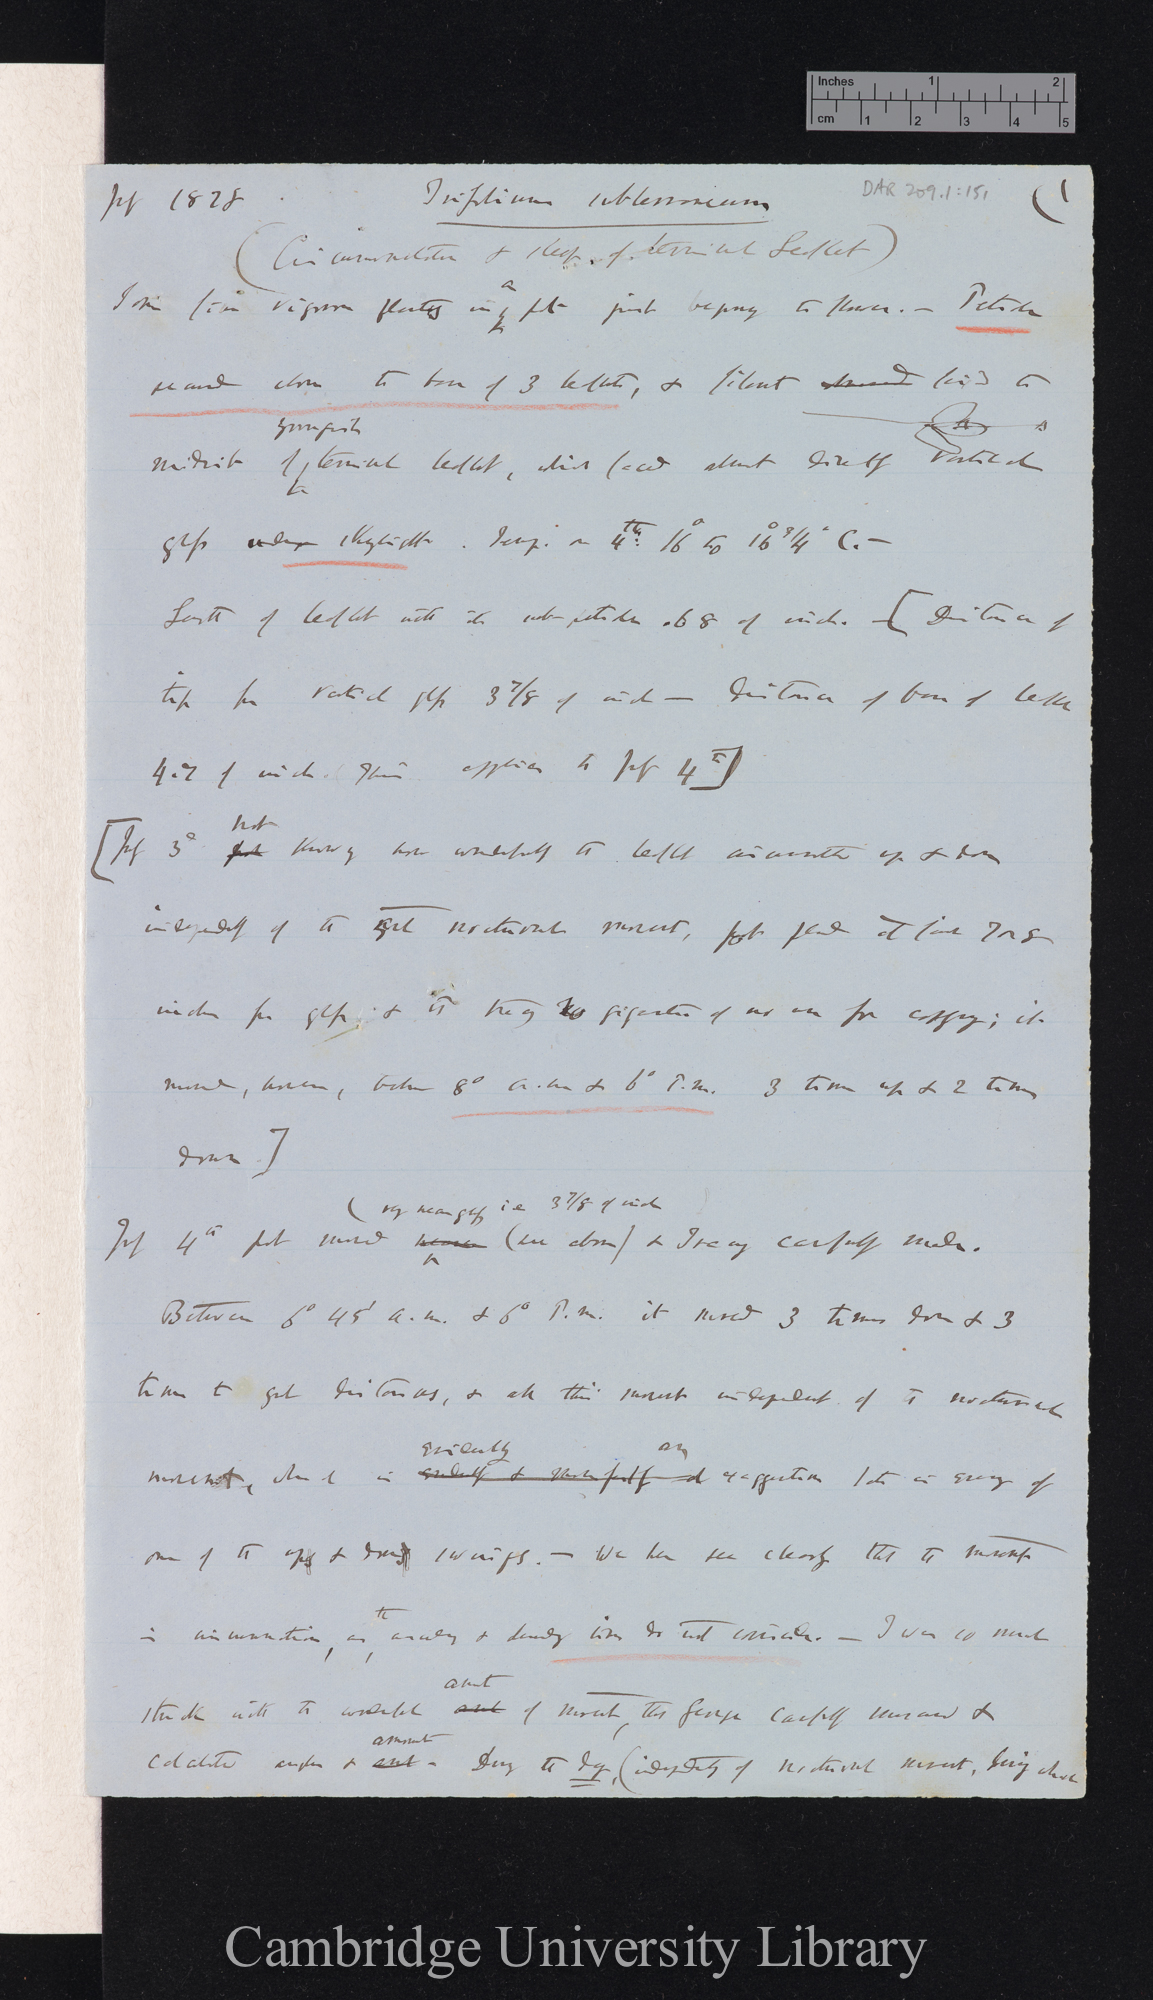 Inches 1 2
cm 1 2 3 4 5
July 1878 Trifolium subterraneum DAR 209.1:151 (1
(Circumnutation & sleep of terminal leaflet)
vigorous a pot just to flower. — Petiole
secured close to base of 3 leaflets, & filament fixed to
youngish
midrib of terminal leaflet, which faced almost directly vertical
glass under skylight. Temp. on 4th. 16° to 16° 3/4° C. —
Length of leaflet with its sub-petiole .68 of inch. — [Distance of
tip from vertical glass 3 7/8 of inch — Distance of base of leaflet
4.7 of inch. This applies to July 4th]
not
[July 3d knowing how wonderfully the leaflet circumnutates up & down
independently of the great nocturnal movement, pot placed at least 7 or 8
inches from glass & the tracing too gigantic & of no use for copying; it
moved, however, between 8° a.m & 6° P.m. 3 times up & 2 times
down]
(very near glass i.e 3 7/8 of inch
July 4th pot moved nearer (see above) & tracing carefully made.
Between 6° 45' a.m. & 6° P.m. it moved 3 times down & 3
times to great distances, & all this movement independent of the nocturnal
evidently an
movement, which is exaggeration of
one of the up & down swings. — We here see clearly that the movement
the
is circumnutation, as ascending & descending lines do not coincide. — I was so much
amount
struck with the wonderful amt of movement, that George carefully measured &
amount
calculated angles & amt — During the day, (independently of nocturnal movement, being
Cambridge University Library